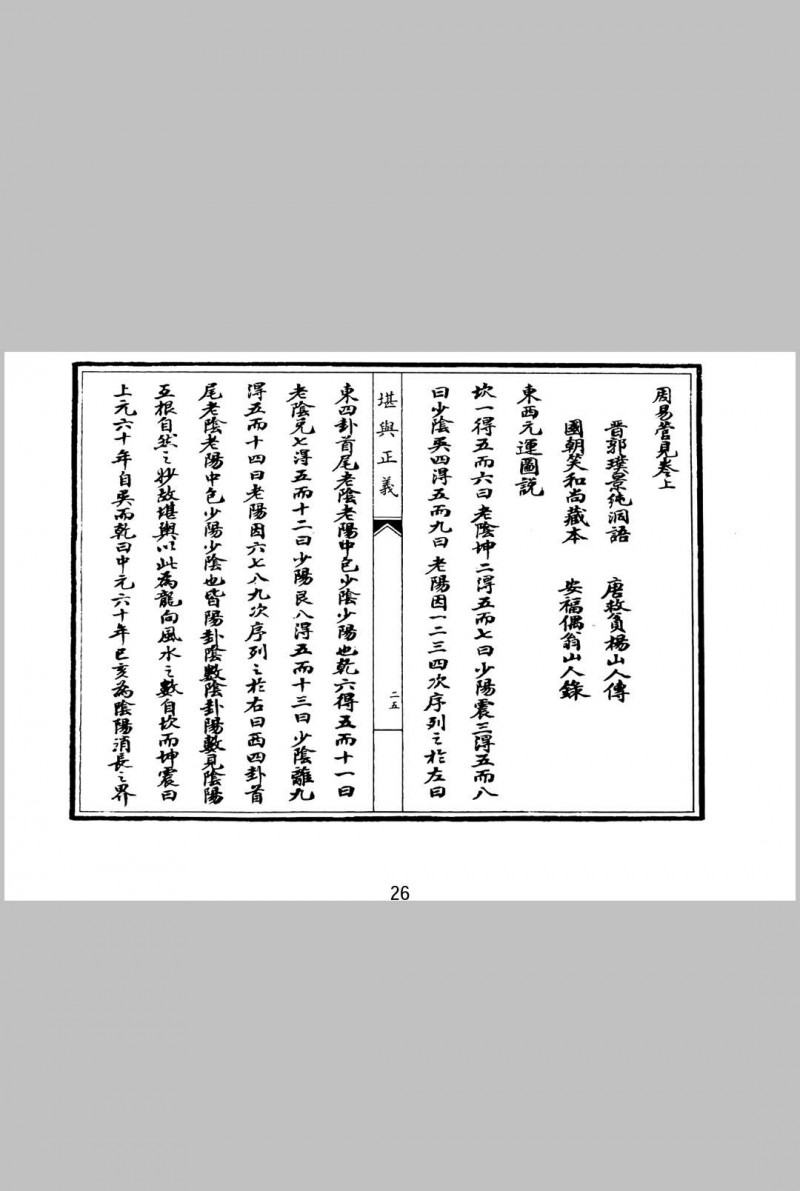 周易管見卷上
晉郭璞景純洞語　唐救貧楊山人傳
國朝笑和尚藏本　安福偶翁山人錄
東西元運圖說
坎一得五而六曰老陰坤二得五而七曰少陽震三得五而八
曰少陰巽四得五而九曰老陽因一二三四次序列之於左曰
堪輿正義
二五
東四卦首尾老陰老陽中包少陰少陽也乾六得五而十一曰
老陰兌七得五而十二曰少陽艮八得五而十三曰少陰離九
得五而十四曰老陽因六七八九次序列之於右曰西四卦首
尾老陰老陽中包少陽少陰也皆陽卦陰數陰卦陽數見陰陽
互根自然之妙故堪輿以此為龍向風水之數自坎而坤震曰
上元六十年自巽而乾曰中元六十年巳亥為陰陽消長之界
26